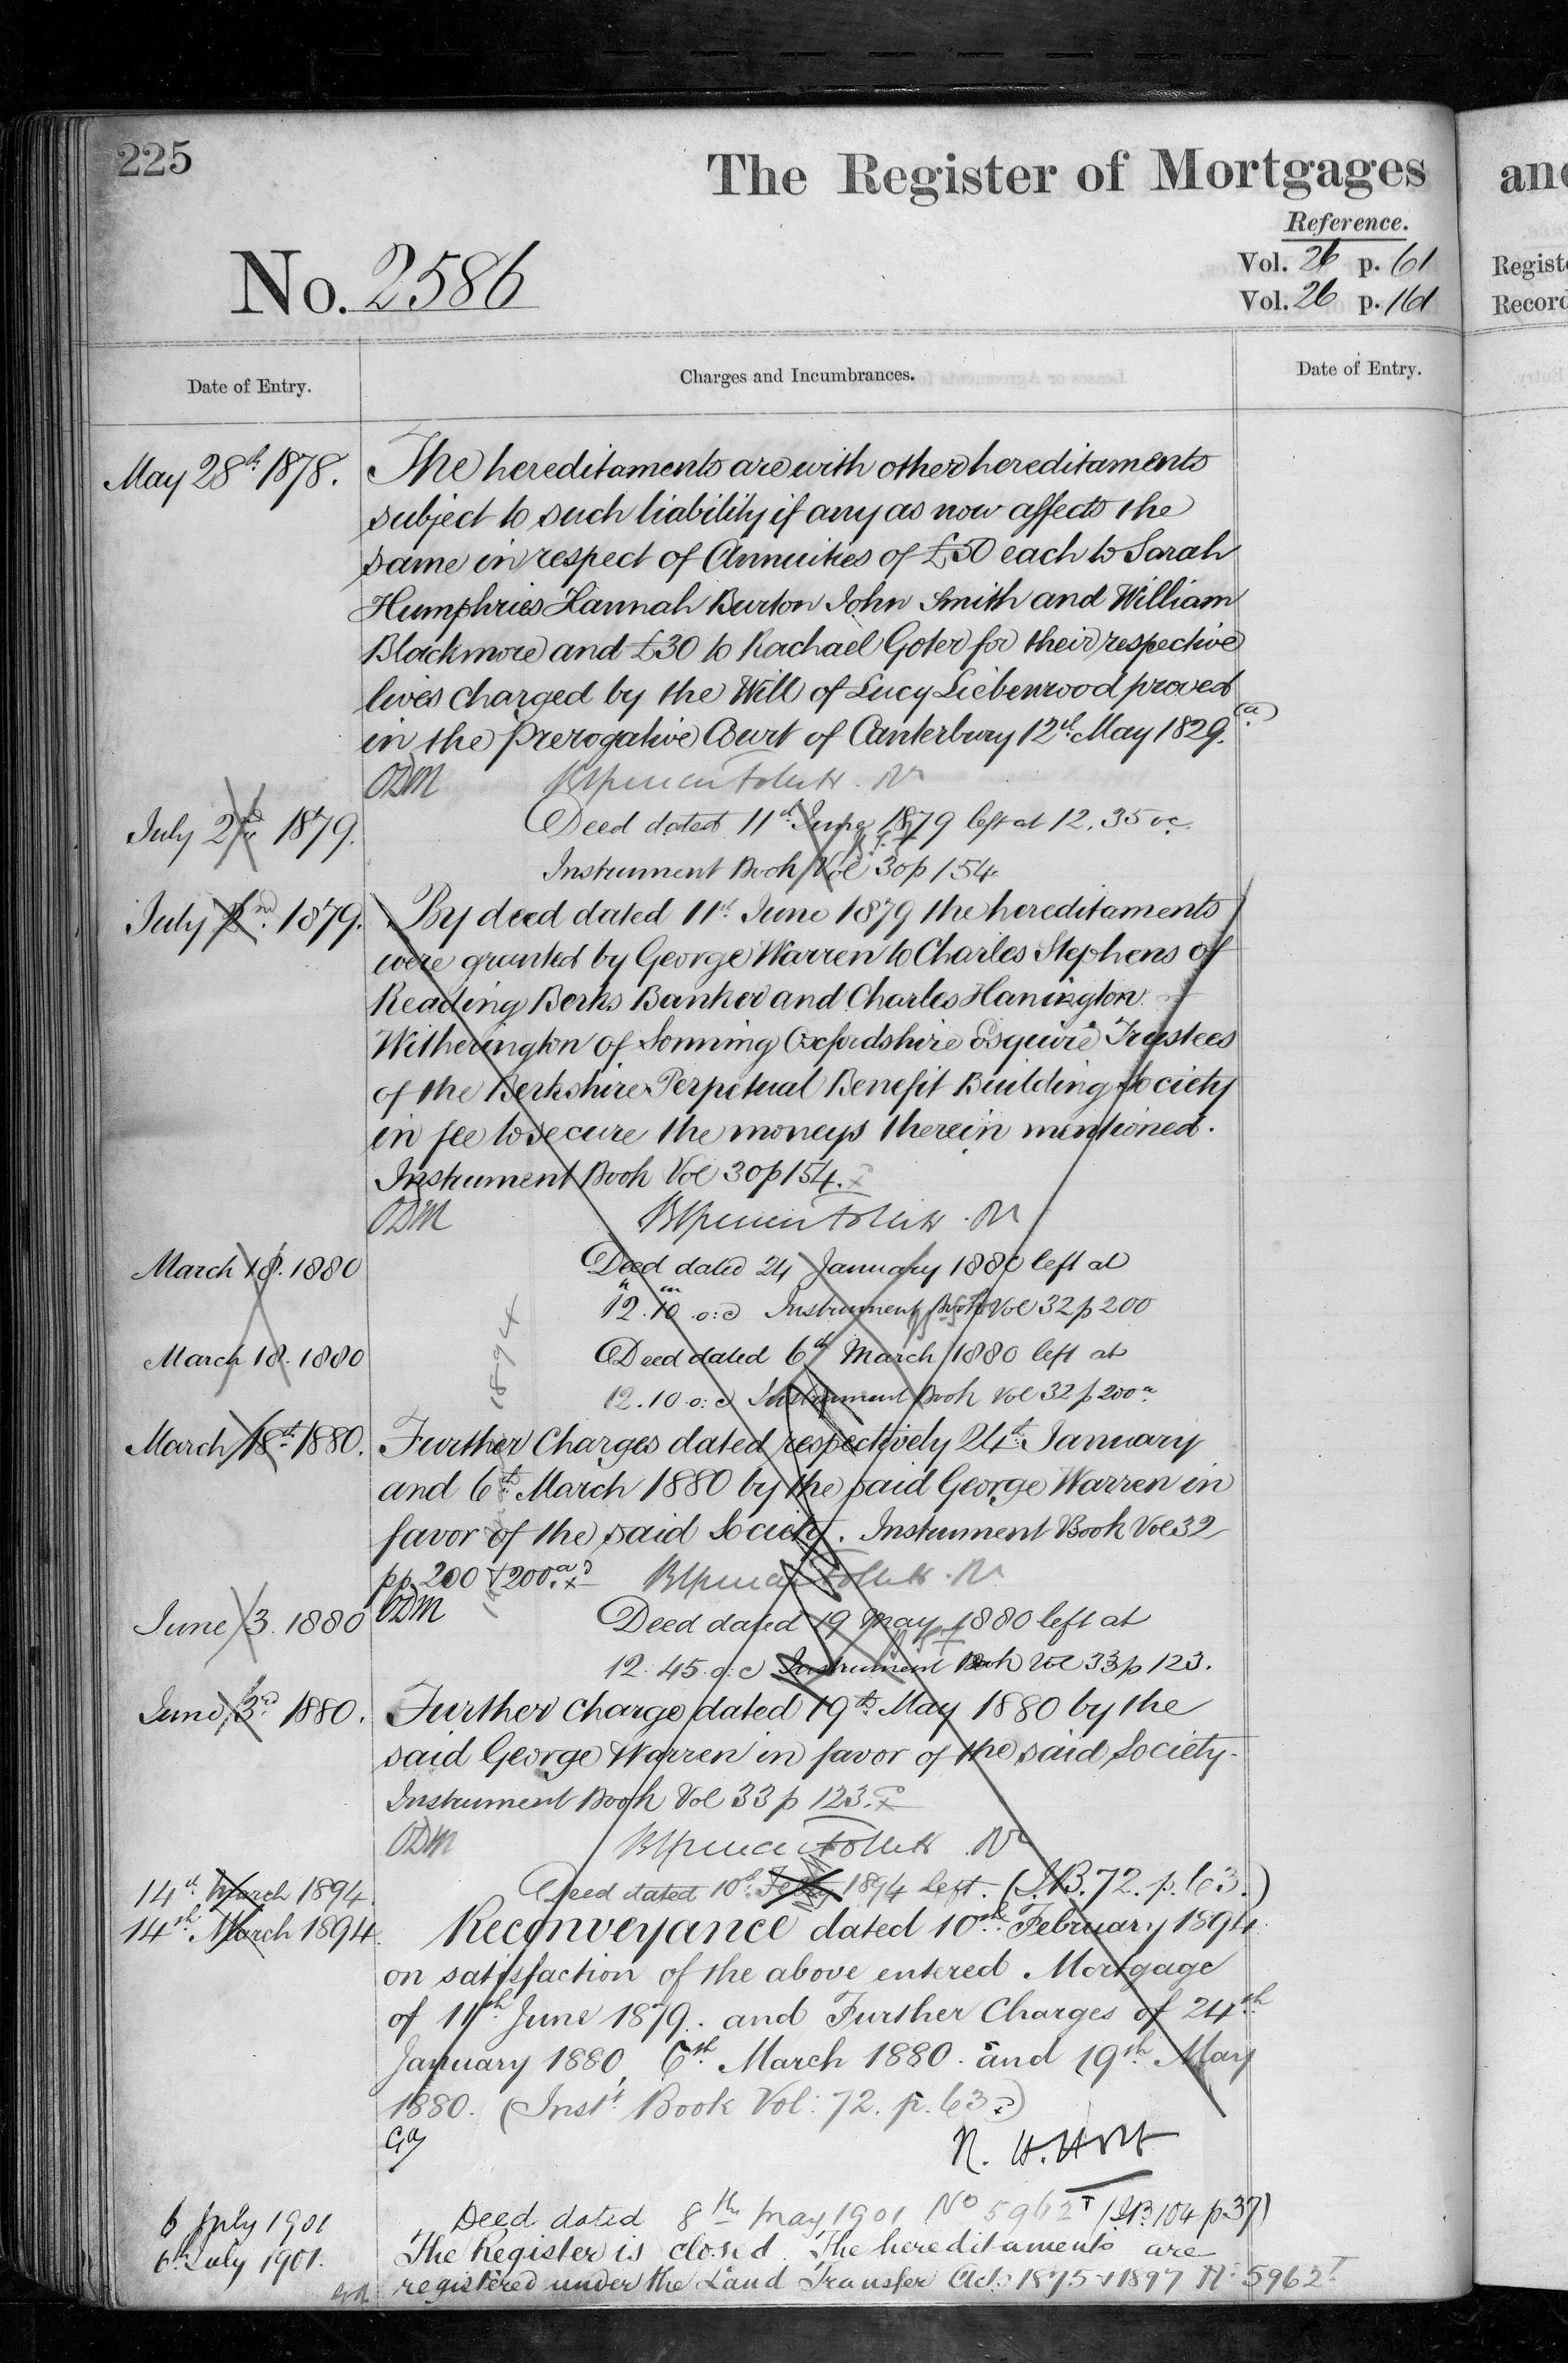 225
The Register of Mortgages
and
Reference.
No. 2586
Vol. 26 p. 61
Vol. 26 p. 161
Registe
Record
Date of Entry.
Charges and Incumbrances.
Date of Entry.
May 28th 1878. The hereditaments are with other hereditaments
subject to such liability if any as now affects the
same in respect of Annuities of £50 each to Sarah
Humphries Hannah Burton John Smith and William
Blackmore and £30 to Rachael Goter for their respective
lives charged by the Will of Lucy Liebenrood proved
in the Prerogative Court of Canterbury 12th May 1829. (a)
ODM
July 2nd 1879. Deed dated 11th June 1879 left at 12.35 oc.
Instrument Book Vol 30 p 154
July 2nd. 1879. By deed dated 11th June 1879 the hereditaments
were granted by George Warren to Charles Stephens of
Reading Berks Banker and Charles Hanington
Witherington of Sonning Oxfordshire Esquire Trustees
of the Berkshire Perpetual Benefit Building Society
in fee to secure the moneys therein mentioned.
Instrument Book Vol 30 p 154.
ODM
March 18. 1880 Deed dated 24 January 1880 left at
12.10 o:c Instrument Book Vol 32 p 200
March 18. 1880 Deed dated 6th March 1880 left at
12.10 o:c Instrument Book Vol 32 p 200a
March 18th 1880. Further Charges dated respectively 24th January
and 6th March 1880 by the said George Warren in
favor of the said Society. Instrument Book Vol 32
pp 200 + 200a
June 3. 1880 ODM Deed dated 19 May 1880 left at
12.45 o:c Instrument Book Vol 33 p 123.
June 3rd 1880. Further Charge dated 19th May 1880 by the
said George Warren in favor of the said Society.
Instrument Book Vol 33 p 123.
ODM
14th March 1894. Deed dated 10th Feby 1894 left. (I.B. 72. p. 63.)
14th March 1894. Reconveyance dated 10th February 1894
on satisfaction of the above entered Mortgage
of 11th June 1879. and Further Charges of 24th
January 1880, 6th March 1880. and 19th May
1880. (Inst. Book Vol: 72. p. 63)
6 July 1901 Deed dated 8th May 1901 No 5962T (IB 104 p.37)
6th July 1901. The Register is closed. The hereditaments are
registered under the Land Transfer Acts 1875 + 1897 No 5962T